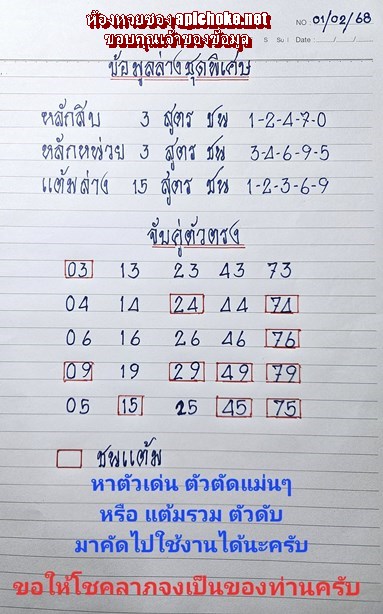 ห้องหวยของ apichoke.net
ขอบคุณเจ้าของข้อมูล
NO 01/02/68
S Su Date
ข้อมูลล่างชุดพิเศษ
หลักสิบ 3 สูตร ชน 1-2-4-7-0
หลักหน่วย 3 สูตร ชน 3-4-6-9-5
แต้มล่าง 15 สูตร ชน 1-2-3-6-9
จับคู่ตัวตรง
03 13 23 43 73
04 14 24 44 74
06 16 26 46 76
09 19 29 49 79
05 15 25 45 75
ชนแต้ม
หาตัวเด่น ตัวตัดแม่นๆ
หรือ แต้มรวม ตัวดับ
มาคัดไปใช้งานได้นะครับ
ขอให้โชคลาภจงเป็นของท่านครับ